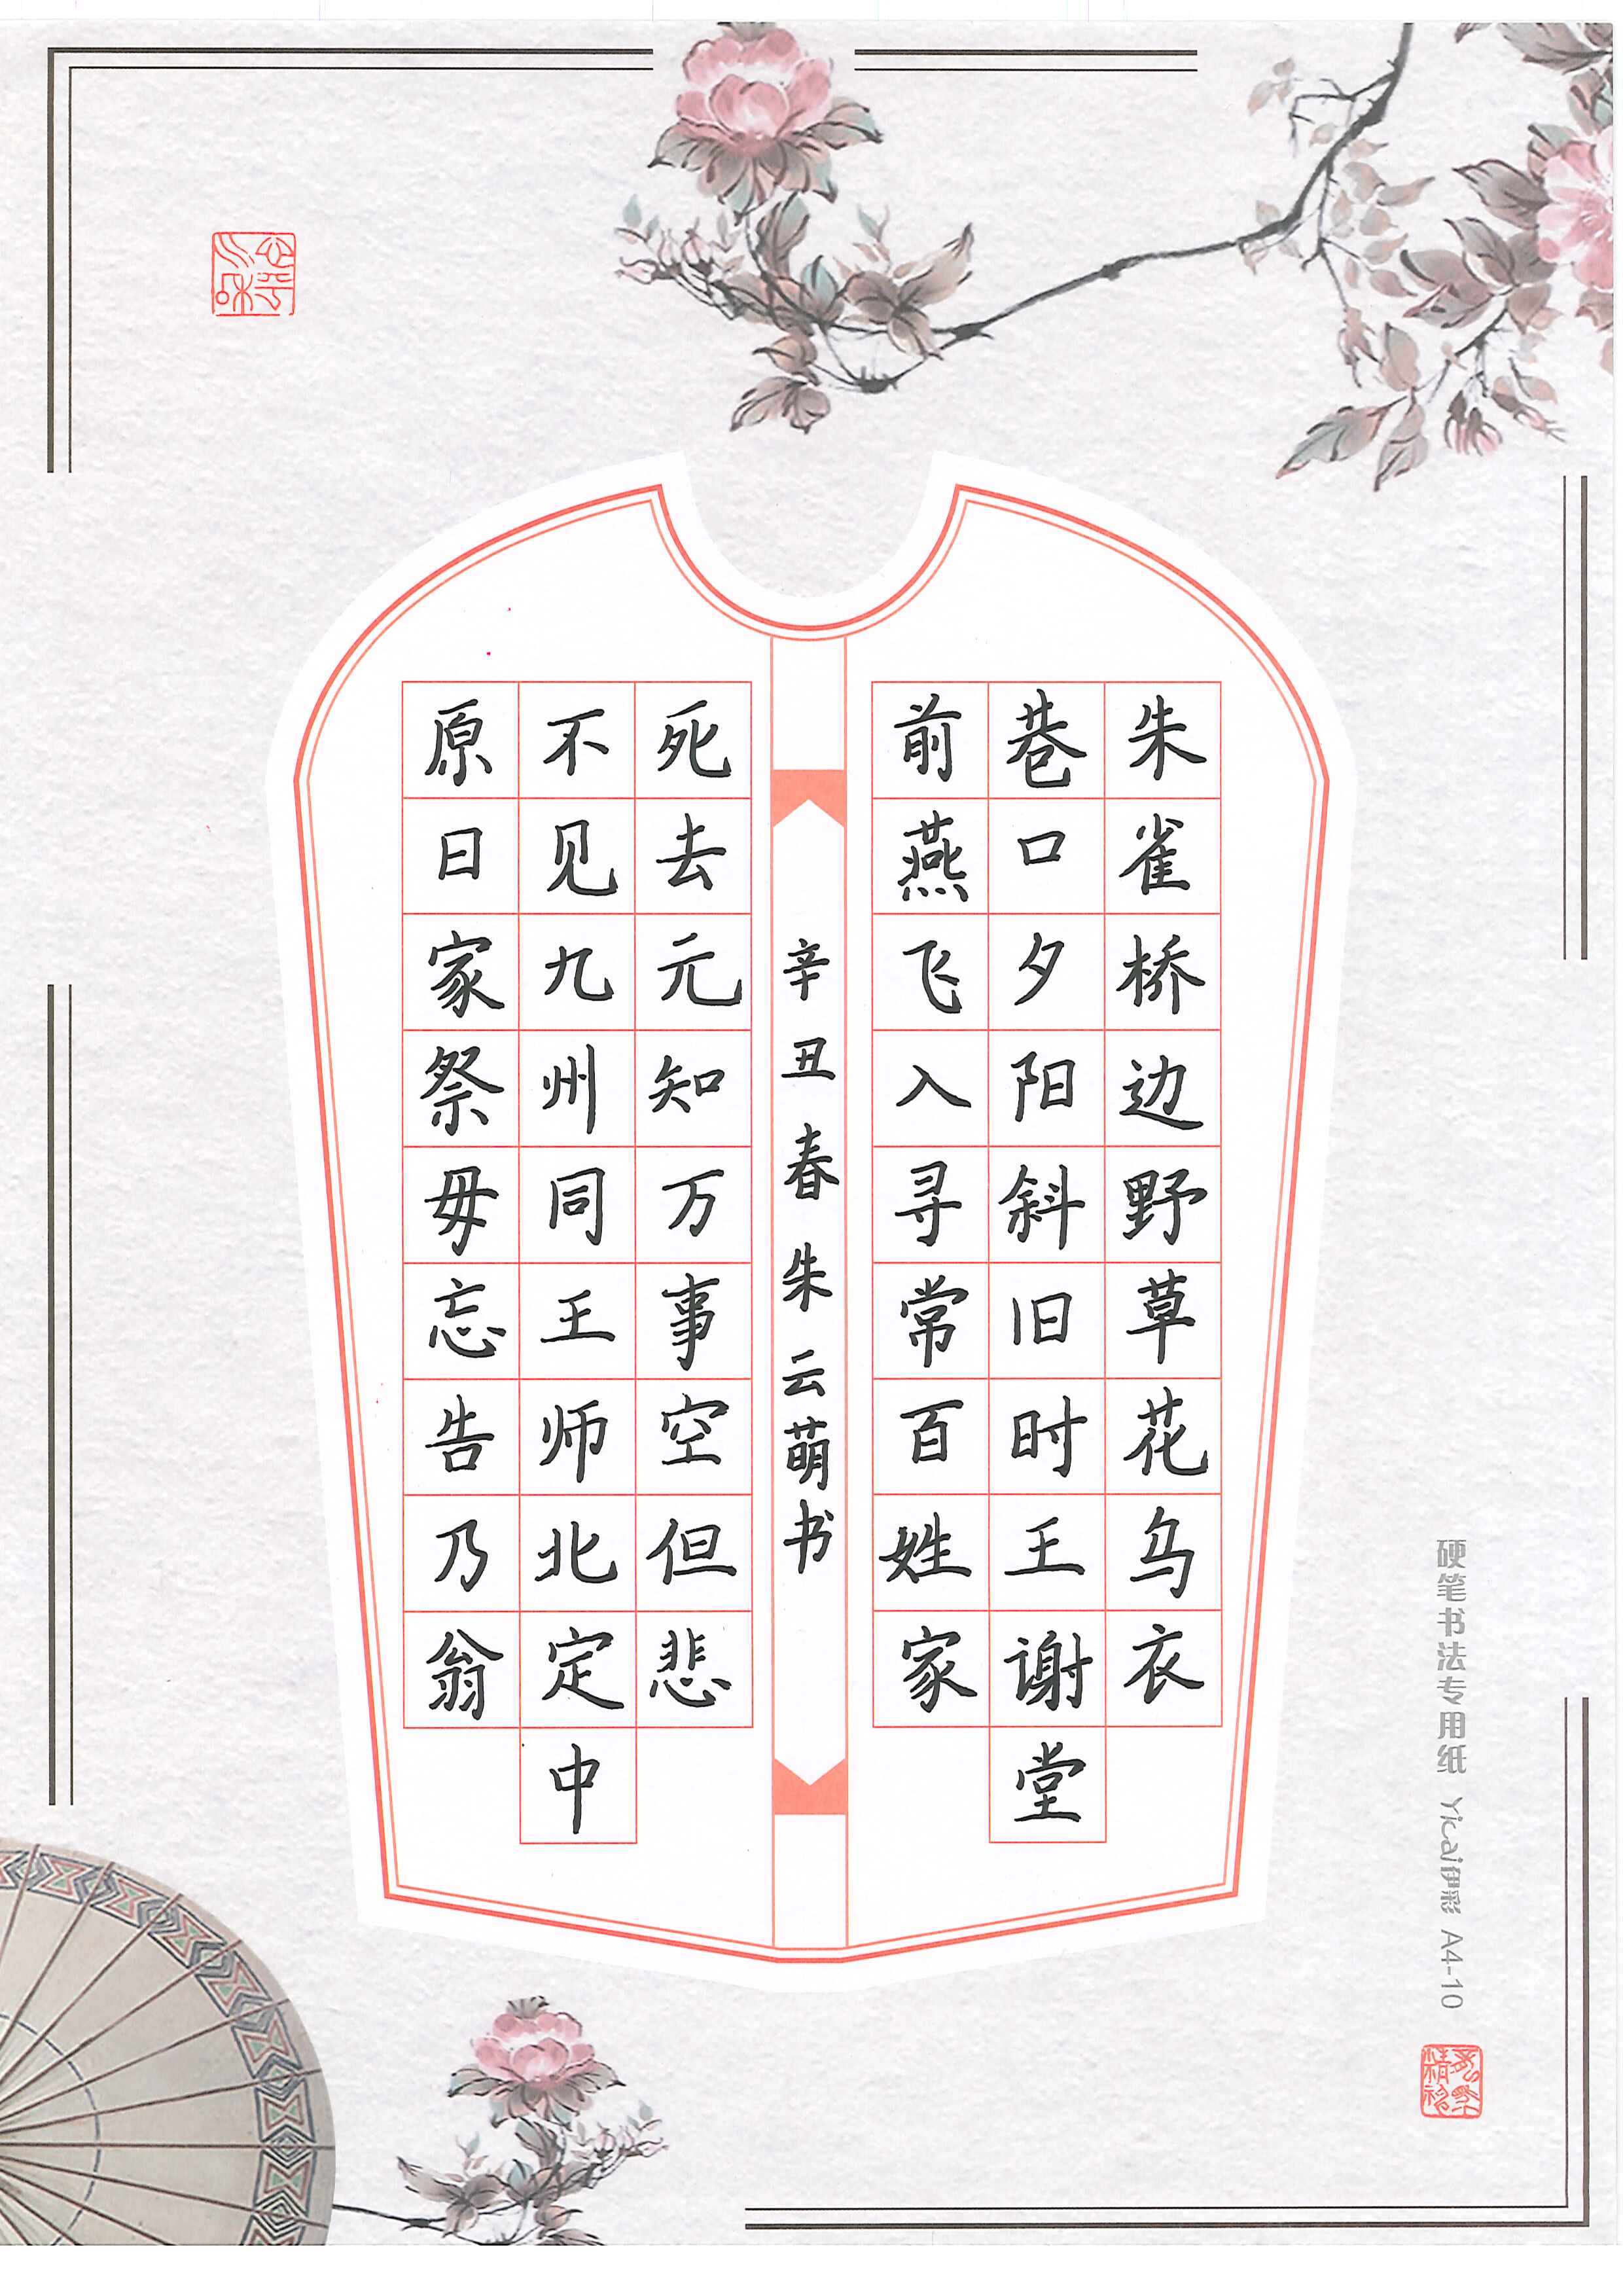 朱雀桥边野草花乌衣
巷口夕阳斜旧时王谢堂
前燕飞入寻常百姓家
辛丑春朱云萌书
死去元知万事空但悲
不见九州同王师北定中
原日家祭毋忘告乃翁
硬笔书法专用纸 Yicai伊彩 A4-10